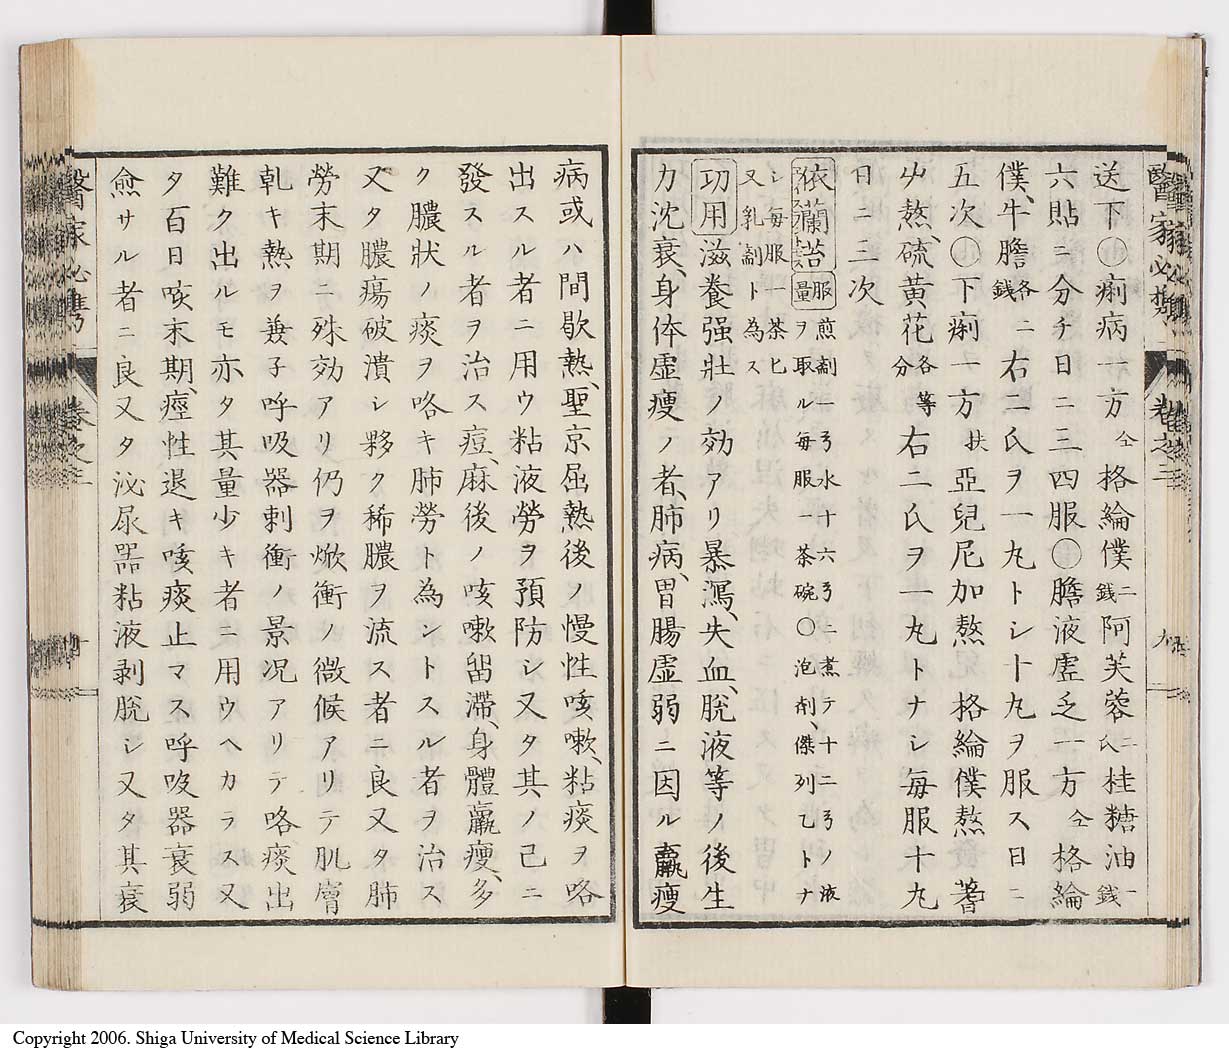 醫家必携
卷之三
九
送下○痢病一方仝格綸僕二錢阿芙蓉二氏桂糖油一錢
六貼ニ分チ日ニ三四服○膽液虚乏一方仝格綸
僕、牛膽各二錢右二氏ヲ一丸トシ十丸ヲ服ス日ニ
五次○下痢一方扶亞兒尼加熬 格綸僕熬 蓍
艸熬、硫黄花各等分右二氏ヲ一丸トナシ毎服十丸
日ニ三次
依蘭苔 服量 煎剤二弓水十六弓ニ煮テ十二弓ノ液ヲ取ル毎服一茶碗○泡剤、傑列乙トナ
シ毎服一茶匕又乳剤ト為ス
功用 滋養强壯ノ効アリ暴瀉、失血、脱液等ノ後生
力沈衰、身体虚痩ノ者、肺病、胃腸虚弱ニ因ル羸痩
病或ハ間歇熱、聖京屈熱後ノ慢性咳嗽、粘痰ヲ咯
出スル者ニ用ウ粘液勞ヲ預防シ又タ其ノ已ニ
發スル者ヲ治ス痘、麻後ノ咳嗽畱滞、身體羸痩、多
ク膿狀ノ痰ヲ咯キ肺勞ト為ントスル者ヲ治ス
又タ膿瘍破潰シ夥ク稀膿ヲ流ス者ニ良又タ肺
勞末期ニ殊効アリ仍ヲ焮衝ノ徴候アリテ肌膚
乹キ熱ヲ兼子呼吸器刺衝ノ景况アリテ咯痰出
難ク出ルモ亦タ其量少キ者ニ用ウヘカラス又
タ百日咳末期、痙性退キ咳痰止マス呼吸器衰弱
愈サル者ニ良又タ泌尿器粘液剥脱シ又タ其衰
醫家必携
卷之三
Copyright 2006. Shiga University of Medical Science Library